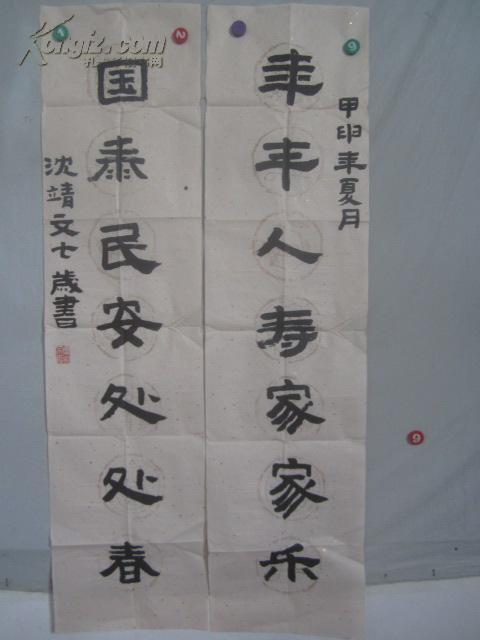 甲申年夏月
年丰人寿家家乐
国泰民安处处春
沈靖文七岁書
Kongzi.com
1
2